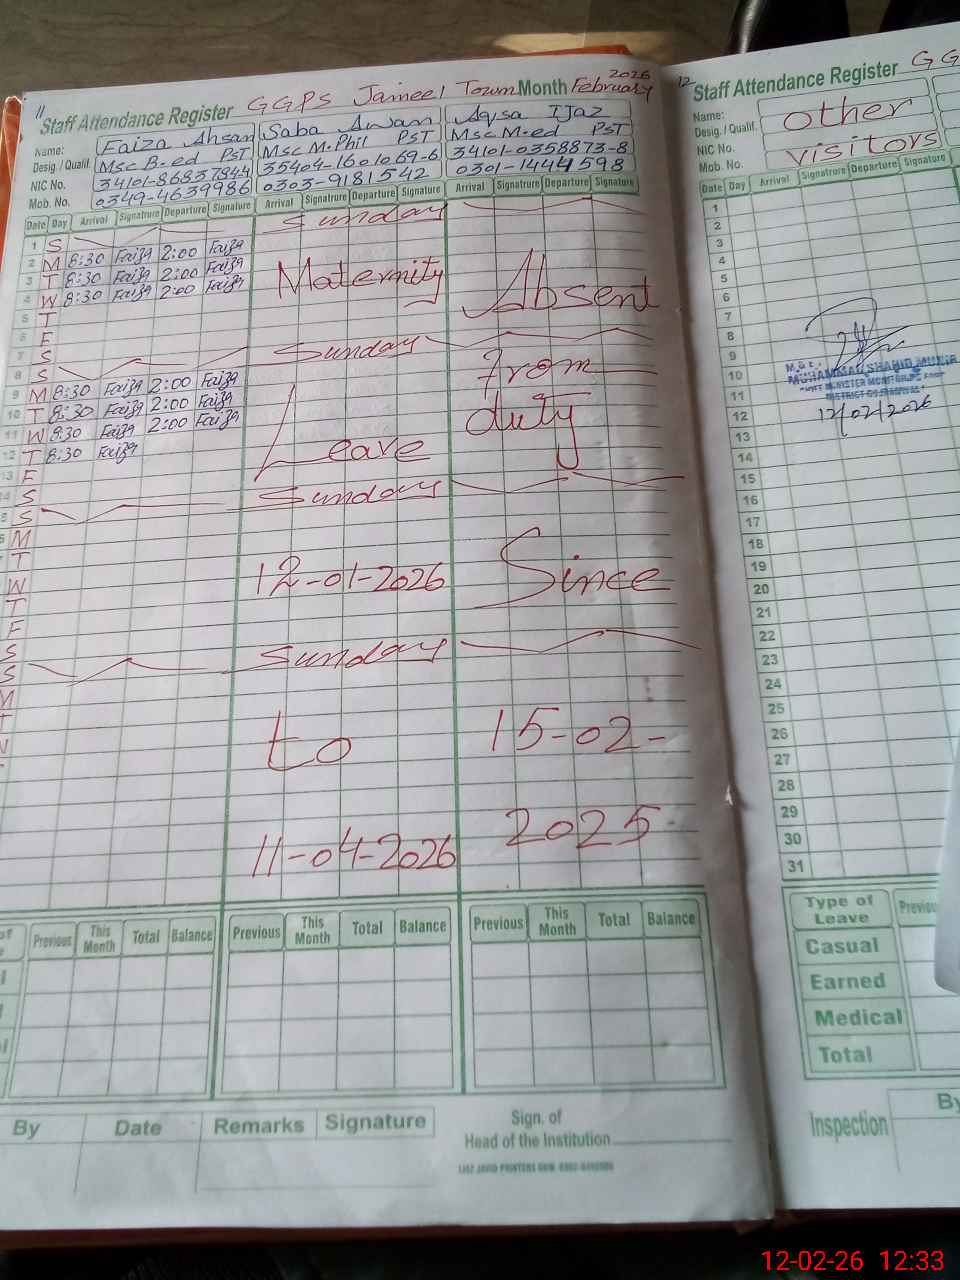 11
Staff Attendance Register GGPS Jameel Town Month February 2026
Name: Faiza Ahsan Saba Awan Aqsa IJaz
Desig. / Qualif. Msc B.ed PST Msc M.Phil PST Msc M.ed PST
NIC No. 34101-86837844 35404-1601069-6 34101-0358873-8
Mob. No. 0349-4639986 0303-9181542 0301-1444598
Date Day Arrival Signature Departure Signature Arrival Signature Departure Signature Arrival Signature Departure Signature
1 S Sunday
2 M 8:30 Faiza 2:00 Faiza
3 T 8:30 Faiza 2:00 Faiza
4 W 8:30 Faiza 2:00 Faiza
Maternity Absent
5 T
6 F
7 S
8 S Sunday From
9 M 8:30 Faiza 2:00 Faiza
10 T 8:30 Faiza 2:00 Faiza
11 W 8:30 Faiza 2:00 Faiza
duty
12 T 8:30 Faiza
Leave
13 F
14 S
S Sunday
M
T
W
12-01-2026 Since
T
F
S
S Sunday
M
T
to 15-02-
2025
11-04-2026
Previous This Month Total Balance Previous This Month Total Balance Previous This Month Total Balance
By Date Remarks Signature
Sign. of
Head of the Institution
12
Staff Attendance Register GG
Name: other
Desig. / Qualif.
NIC No. visitors
Mob. No.
Date Day Arrival Signature Departure Signature
1
2
3
4
5
6
7
8
9
10
11
12
13
14
15
16
17
18
19
20
21
22
23
24
25
26
27
28
29
30
31
MUHAMMAD SHAHID
12/02/2026
Type of Leave Previous
Casual
Earned
Medical
Total
Inspection By
12-02-26 12:33